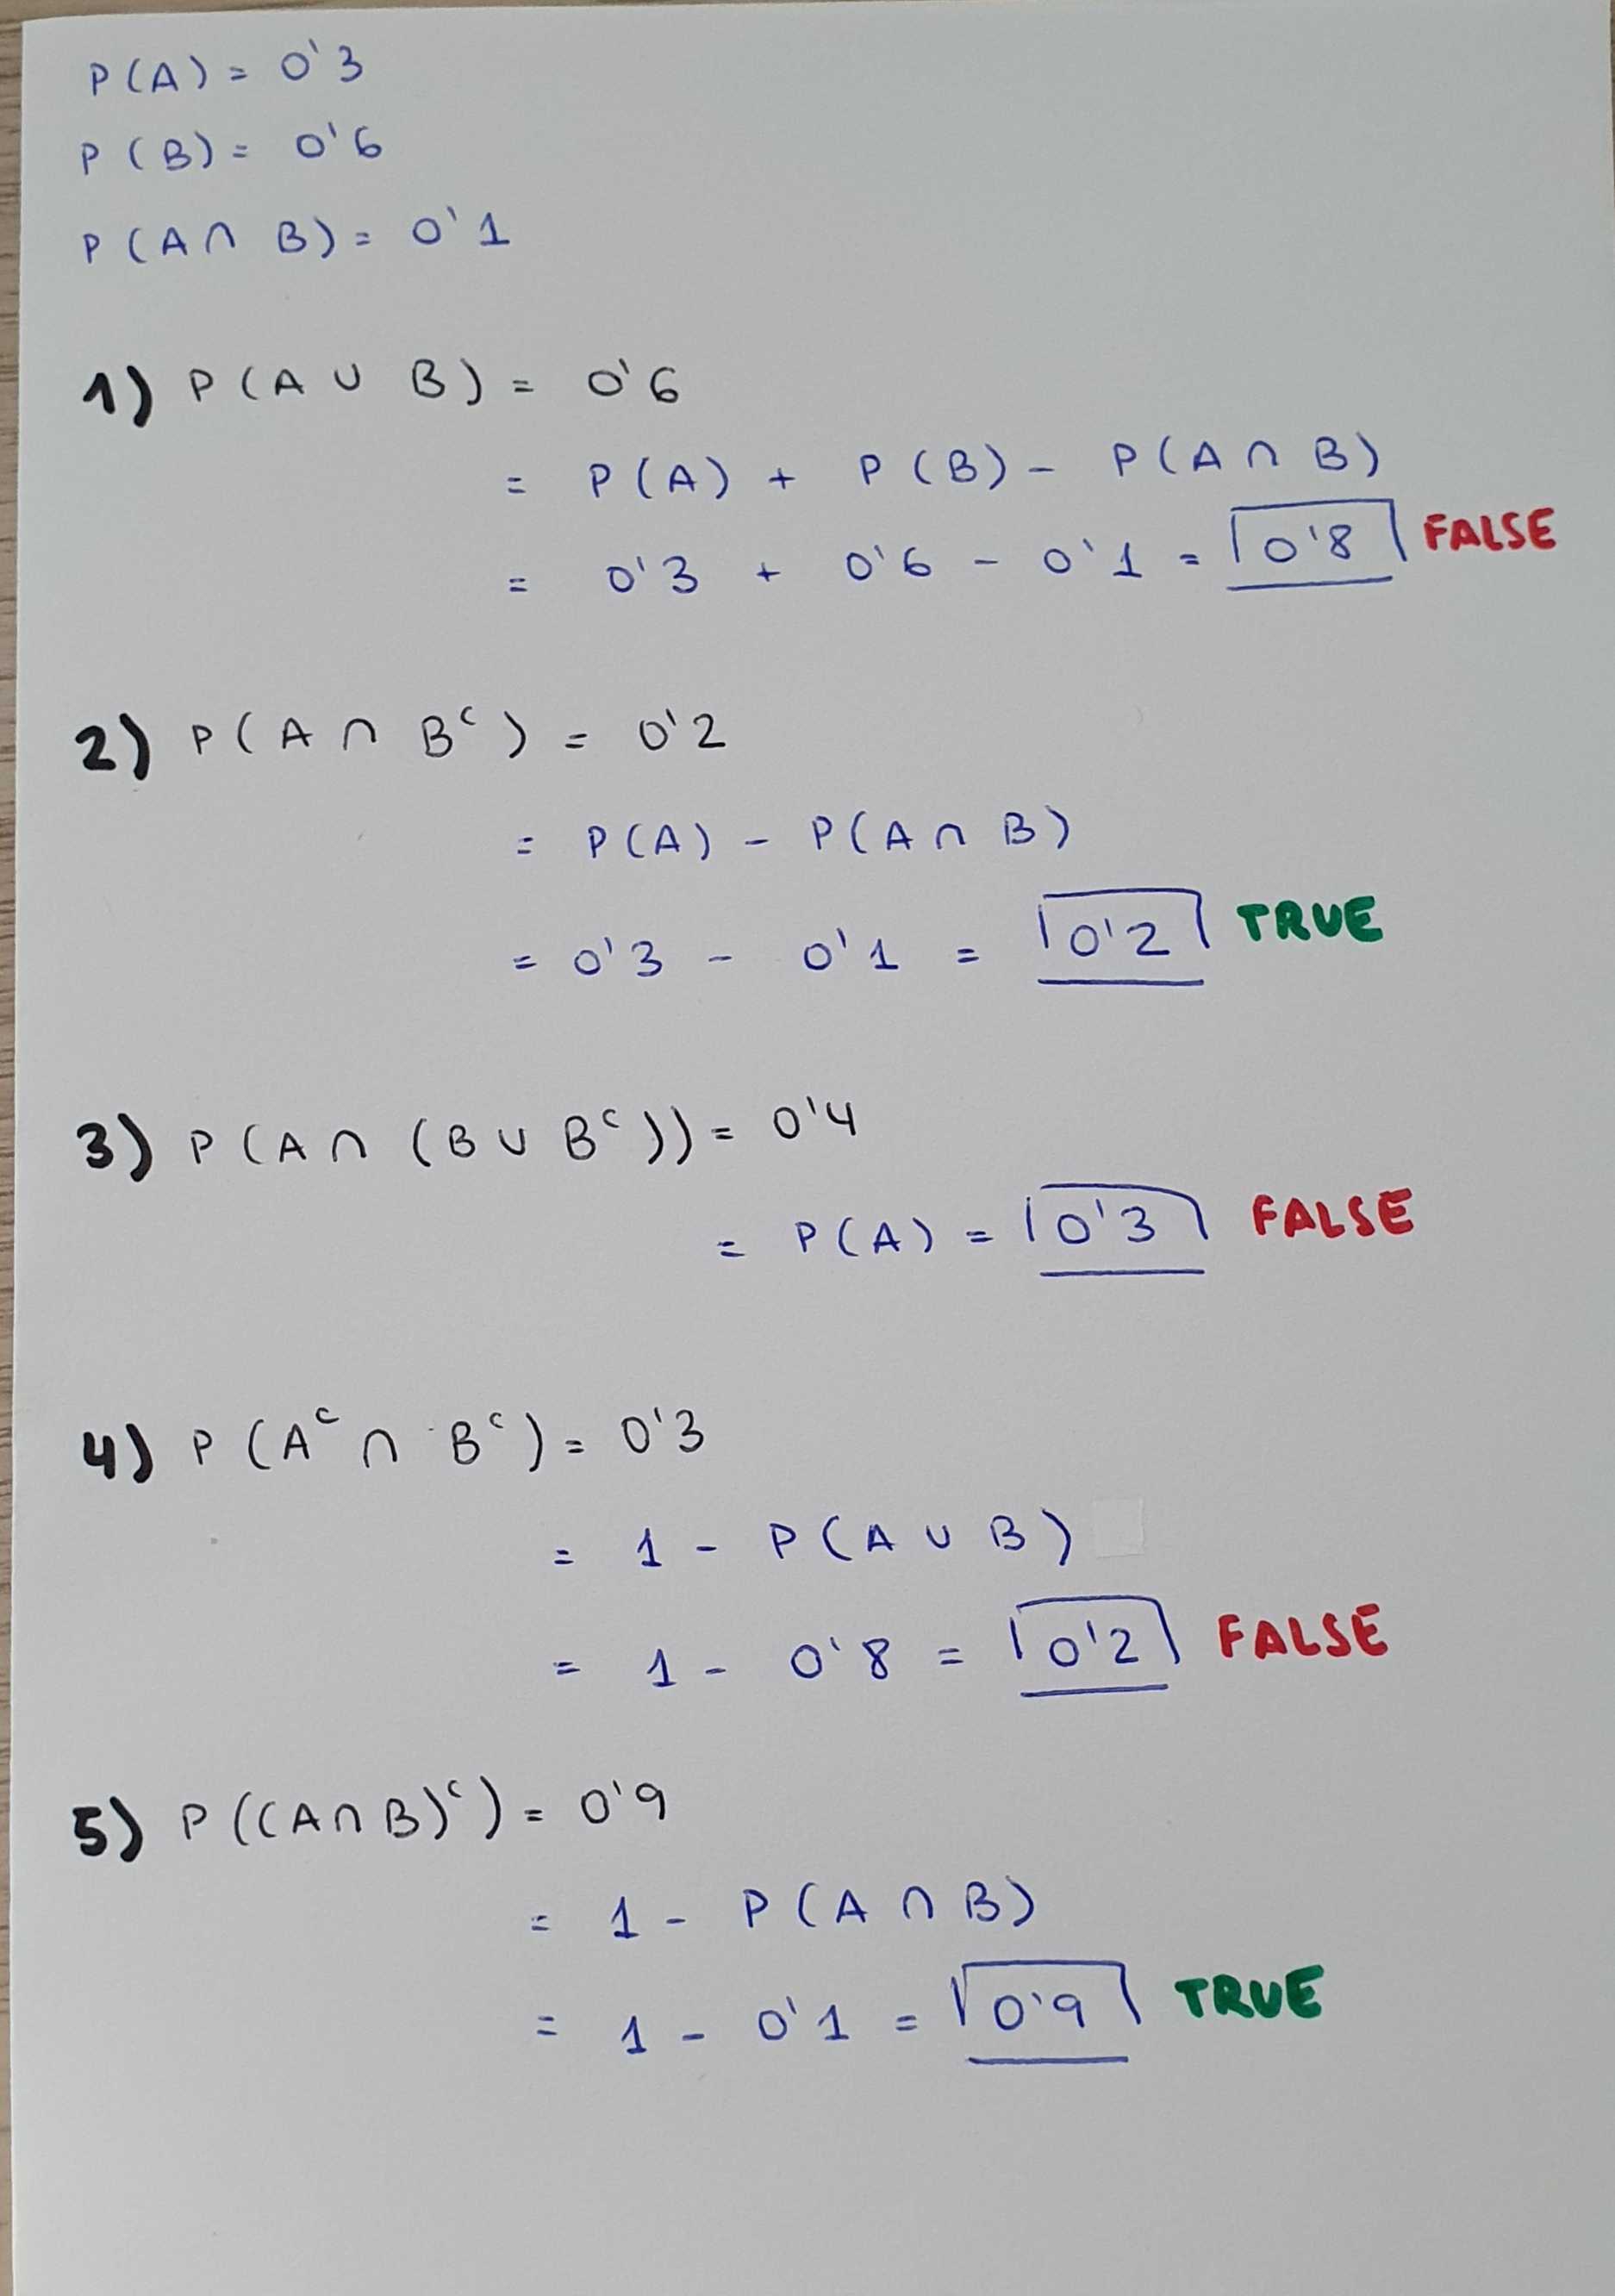 P(A) = 0'3
P(B) = 0'6
P(A ∩ B) = 0'1
1) P(A ∪ B) = 0'6
= P(A) + P(B) - P(A ∩ B)
= 0'3 + 0'6 - 0'1 = 0'8 FALSE
2) P(A ∩ Bᶜ) = 0'2
= P(A) - P(A ∩ B)
= 0'3 - 0'1 = 0'2 TRUE
3) P(A ∩ (B ∪ Bᶜ)) = 0'4
= P(A) = 0'3 FALSE
4) P(Aᶜ ∩ Bᶜ) = 0'3
= 1 - P(A ∪ B)
= 1 - 0'8 = 0'2 FALSE
5) P((A ∩ B)ᶜ) = 0'9
= 1 - P(A ∩ B)
= 1 - 0'1 = 0'9 TRUE